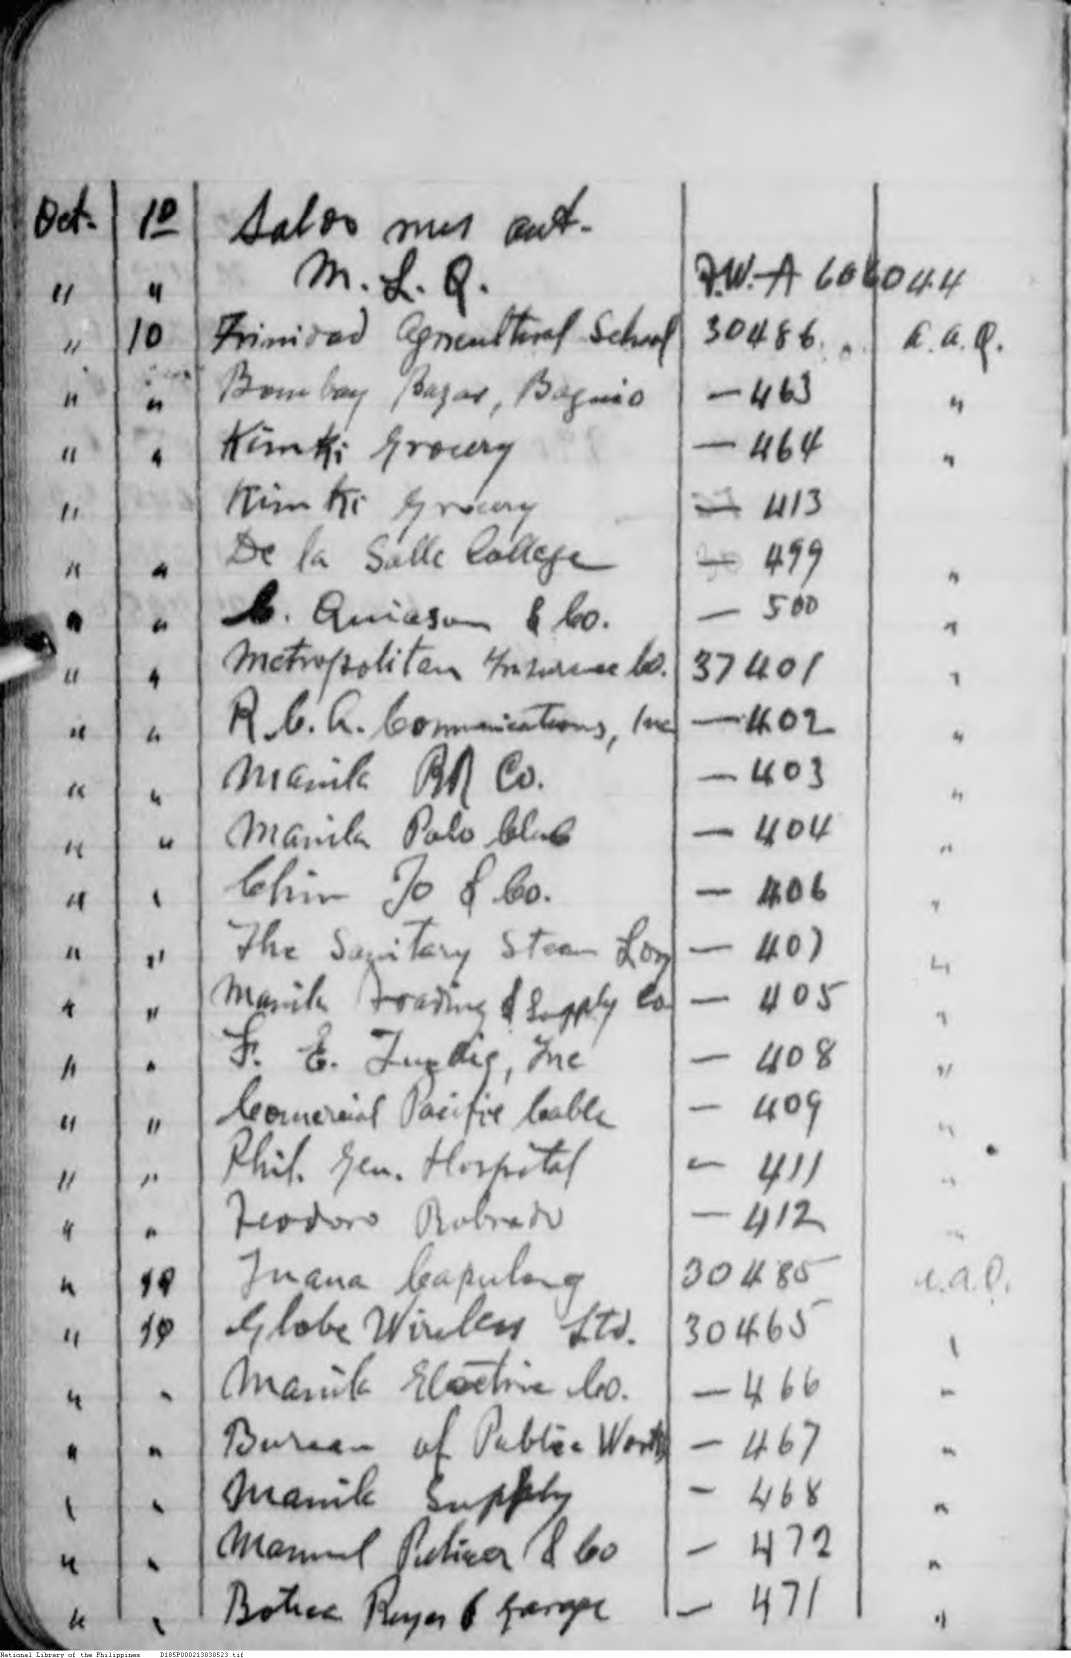 Oct. 10 Saldo mes ant.
" " M. L. Q. P.W.-A 606044
" 10 Trinidad Agricultural School 30486 a.a.Q.
" " Bombay Bazar, Baguio — 463 "
" " Kim Ki Grocery — 464 "
" Kim Ki Grocery — 413
" " De la Salle College — 499 "
" " C. Quiason & Co. — 500 "
" " Metropolitan Insurance Co. 37401 "
" " R.C.A. Communications, Inc — 402 "
" " Manila RR Co. — 403 "
" " Manila Polo Club — 404 "
" " Chin Jo & Co. — 406 "
" " The Sanitary Steam — 407 "
" " Manila Trading & Supply Co. — 405 "
" " F. E. Zuellig, Inc — 408 "
" " Comercial Pacific Cable — 409 "
" " Phil. Gen. Hospital — 411 "
" " Teodoro Robrado — 412 "
" 10 Juana Capulong 30485 a.a.Q.
" 10 Globe Wireless Ltd. 30465 "
" " Manila Electric Co. — 466 "
" " Bureau of Public Works — 467 "
" " Manila Supply — 468 "
" " Manuel Pellicer & Co — 472 "
" " Botica Reyes & Garage — 471 "
National Library of the Philippines D185P000213838523.tif